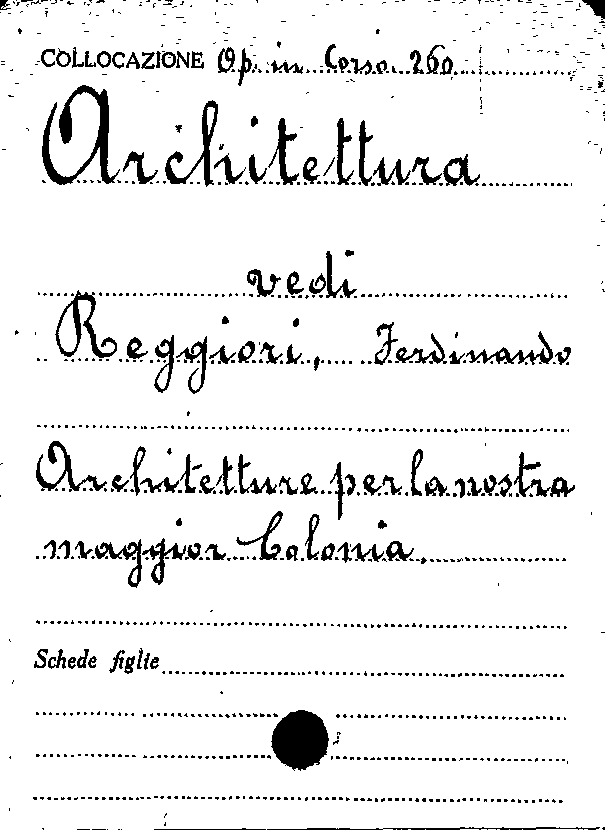 COLLOCAZIONE Op. in Corso. 260
Architettura
vedi
Reggiori, Ferdinando
Architetture per la nostra
maggior Colonia.
Schede figlie